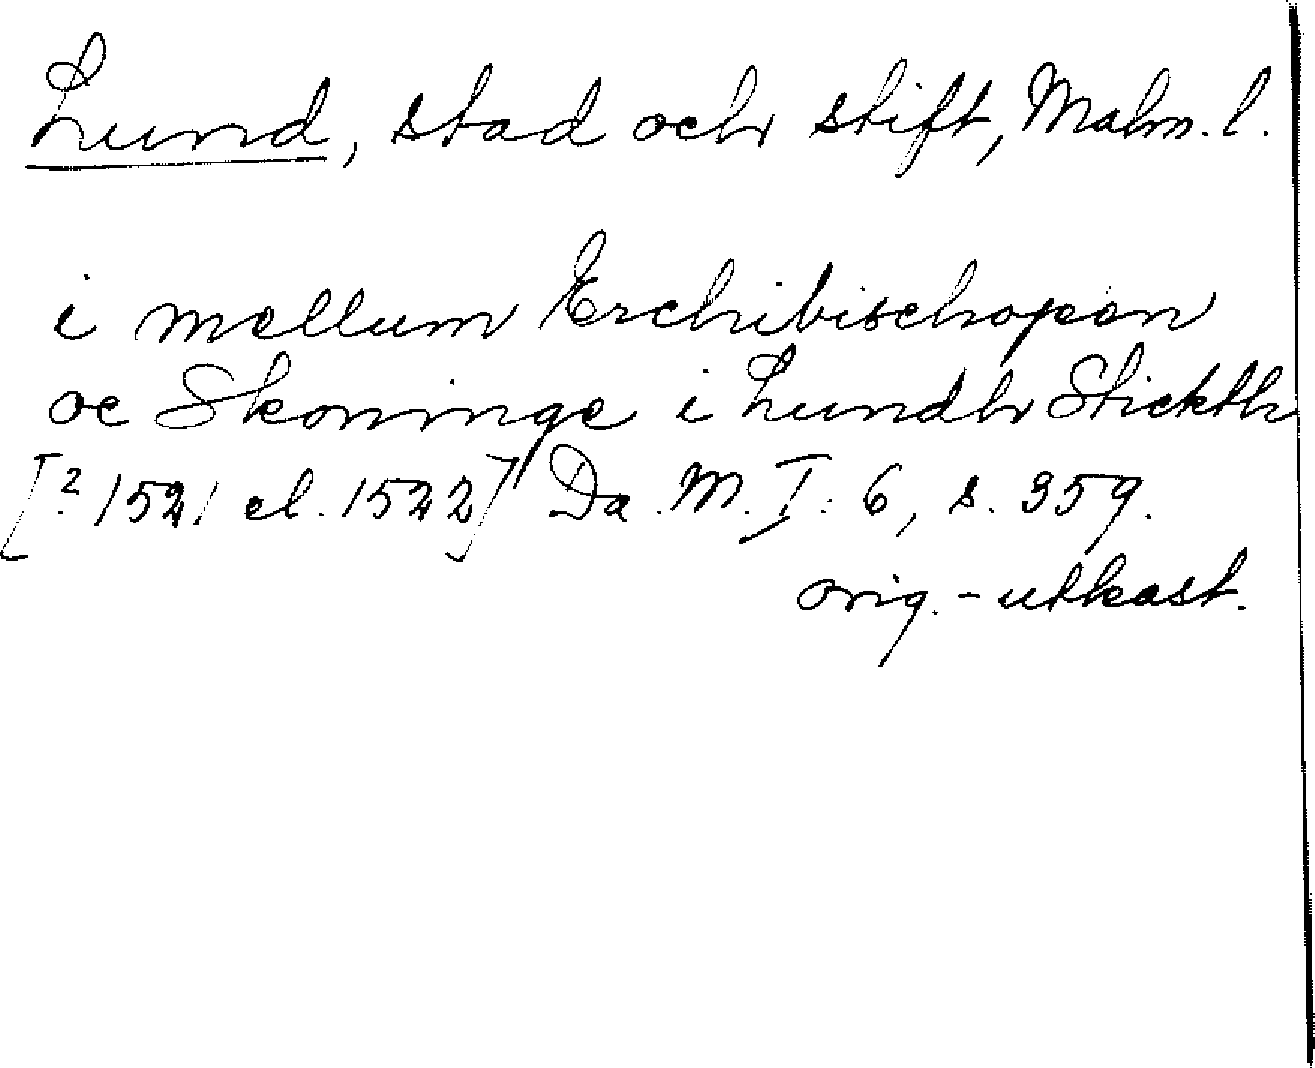 Lund, stad och stift, Malm. l.
i mellum Erchibischopen
oc Skoninge i Lundh Stickth
[? 1521 el. 1522] Da. M. I: 6, s. 359.
orig.-utkast.